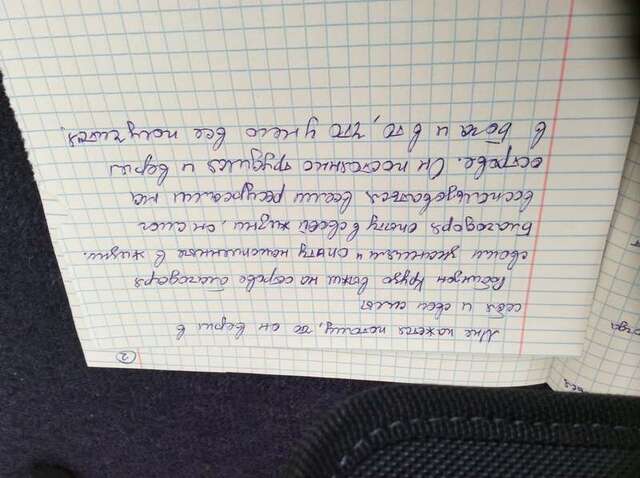 ься
огда
2
Мне кажется потому, что он верил в
себя и свои силы
Робинзон Крузо выжил на острове благодаря
своим знаниям и опыту накопленные в жизни.
Благодоря опыту в своей жизни, он смог
воспользоваться всеми ресурсами на
острове. Он постоянно трудился и верил
в Бога и в то, что у него все получится.